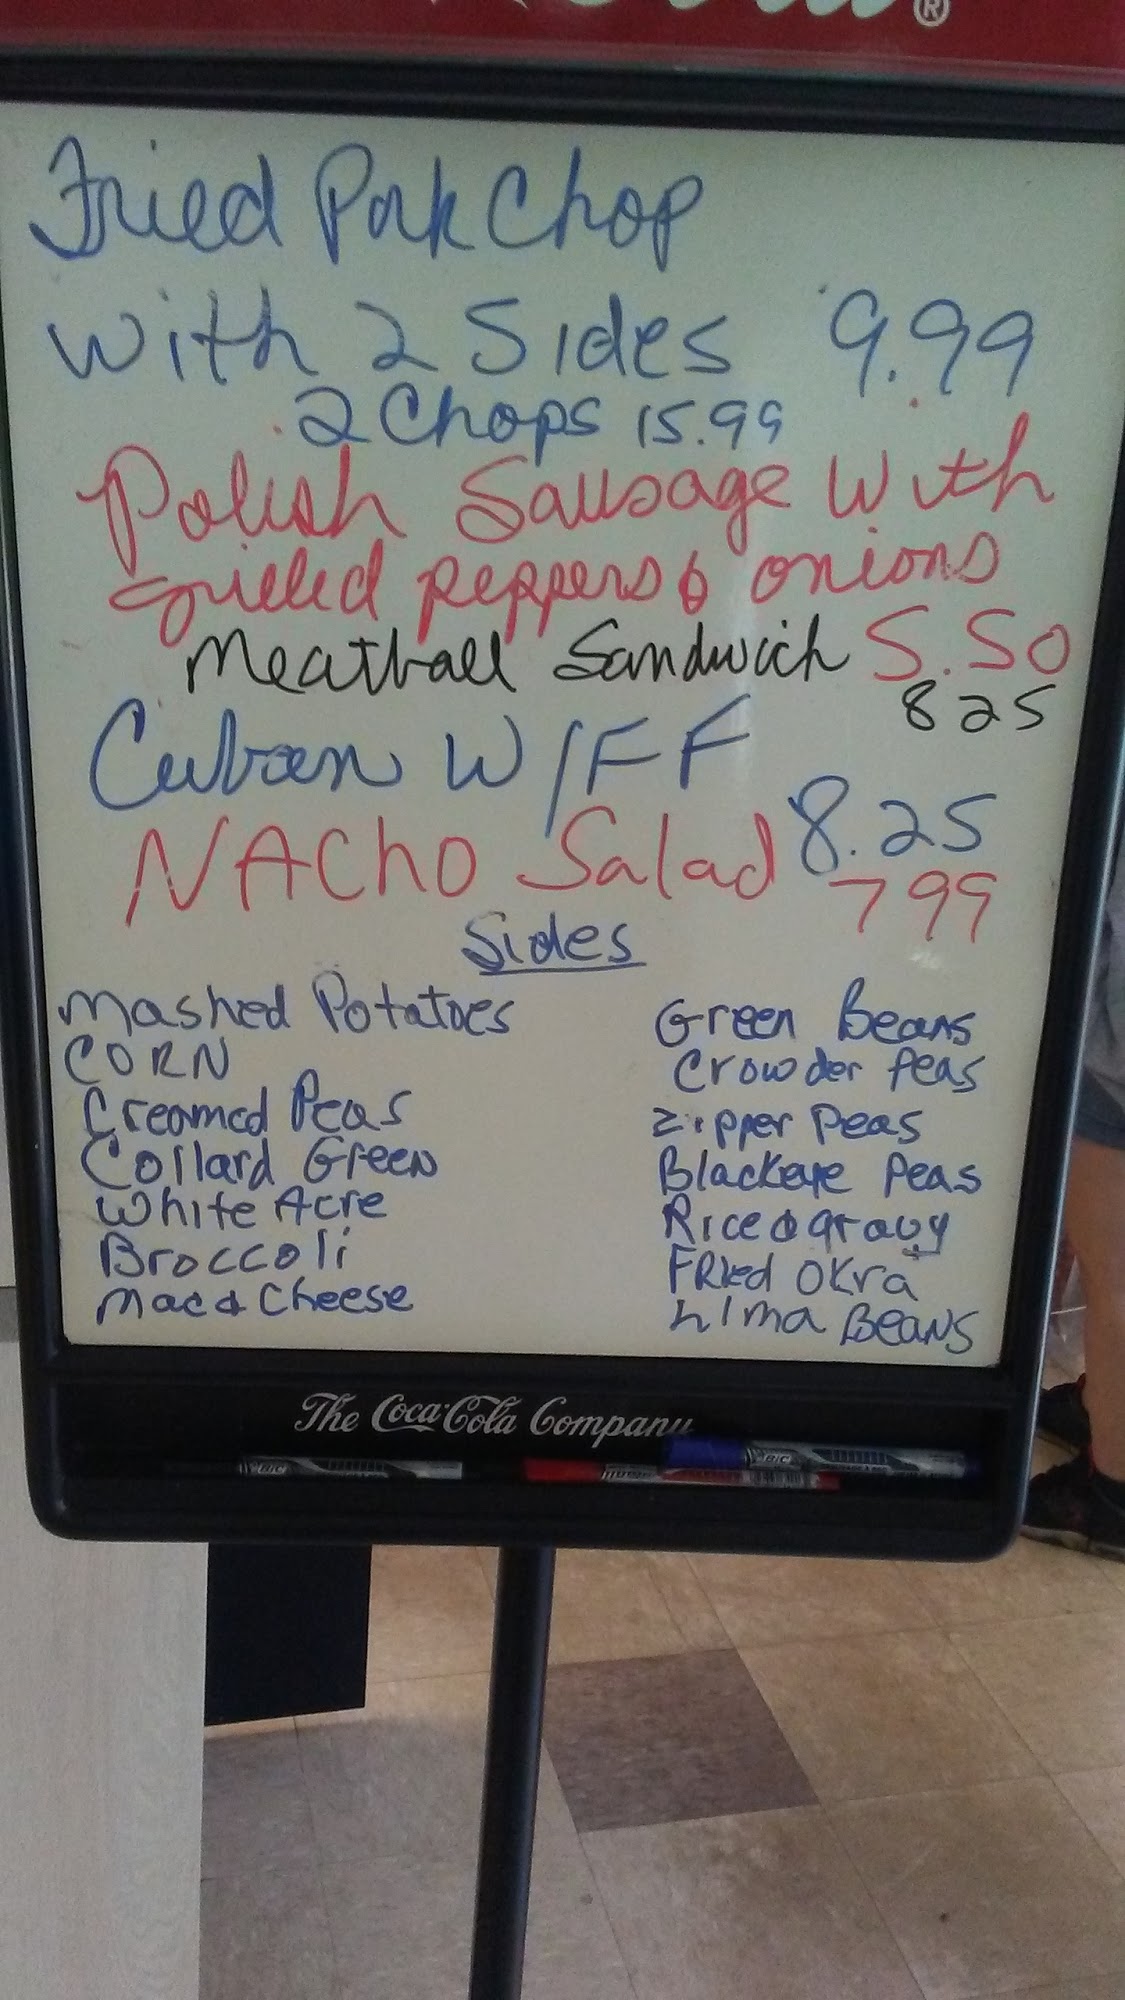 ®
Fried Pork Chop
with 2 Sides 9.99
2 Chops 15.99
Polish Sausage with
grilled peppers & onions
5.50
Meatball Sandwich
825
Cuban W/FF
8.25
NACHO Salad 799
Sides
Mashed Potatoes
CORN
Creamed Peas
Collard Green
White Acre
Broccoli
Mac & Cheese
Green Beans
Crowder Peas
Zipper Peas
Blackeye Peas
Rice & gravy
FRied OKra
Lima BEANS
The Coca-Cola Company
BIC
BIC